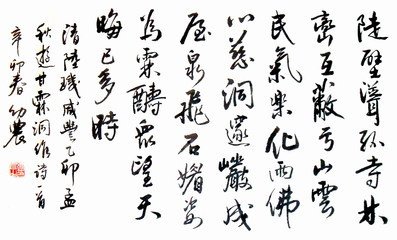 陡壁聳孤寺林
巒互蔽亏山雲
民氣樂化雨佛
心慈洞邃巖成
屋泉飛石媚姿
為霖醻眾望天
晦已多時
清陸璣咸豐乙卯孟
秋遊甘霖洞作詩一首
辛卯春幼農